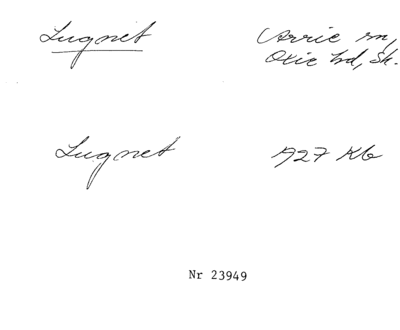 Lugnet
Arrie sn,
Oxie hd, Sk.
Lugnet
1927 Kb
Nr 23949